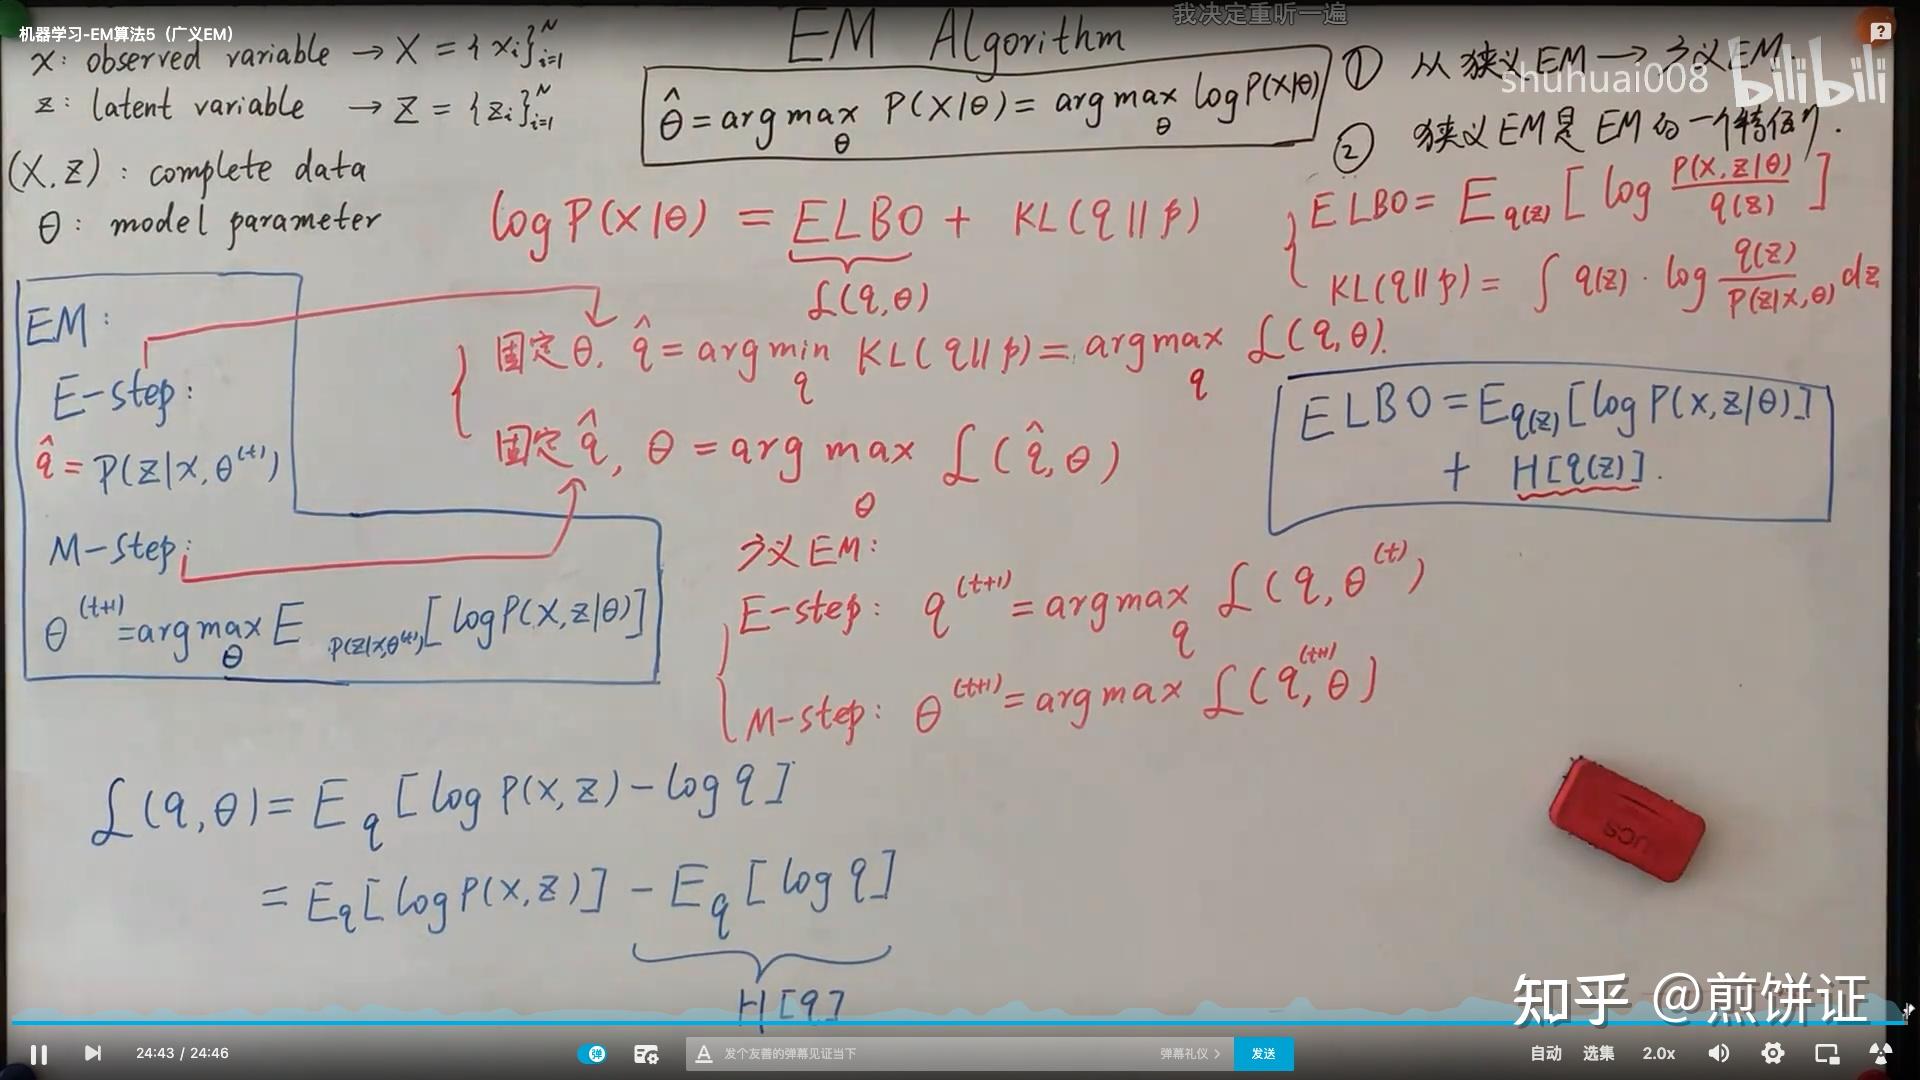 机器学习-EM算法5（广义EM）
我决定重听一遍
EM Algorithm
x: observed variable → X = {xi}_{i=1}^{N}
z: latent variable → Z = {zi}_{i=1}^{N}
(X, Z): complete data
θ: model parameter
θ̂ = arg max_θ P(X|θ) = arg max_θ log P(X|θ)
① 从狭义EM → 广义EM.
② 狭义EM是EM的一个特例.
shuhuai008 bilibili
log P(X|θ) = ELBO + KL(q||p)
L(q,θ)
ELBO = E_{q(z)} [log P(X,Z|θ) / q(z)]
KL(q||p) = ∫ q(z) · log q(z) / P(z|x,θ) dz
固定θ, q̂ = arg min_q KL(q||p) = arg max_q L(q,θ).
固定q̂, θ = arg max_θ L(q̂,θ)
ELBO = E_{q(z)} [log P(X,Z|θ)]
+ H[q(z)].
EM:
E-step:
q̂ = P(Z|X,θ^{(t)})
M-step:
θ^{(t+1)} = arg max_θ E_{P(Z|X,θ^{(t)})} [log P(X,Z|θ)]
广义EM:
E-step: q^{(t+1)} = arg max_q L(q,θ^{(t)})
M-step: θ^{(t+1)} = arg max L(q^{(t+1)},θ)
L(q,θ) = E_q [log P(X,Z) - log q]
= E_q [log P(X,Z)] - E_q [log q]
H[q]
知乎 @煎饼证
24:43 / 24:46
弹
A 发个友善的弹幕见证当下
弹幕礼仪 >
发送
自动 选集 2.0x